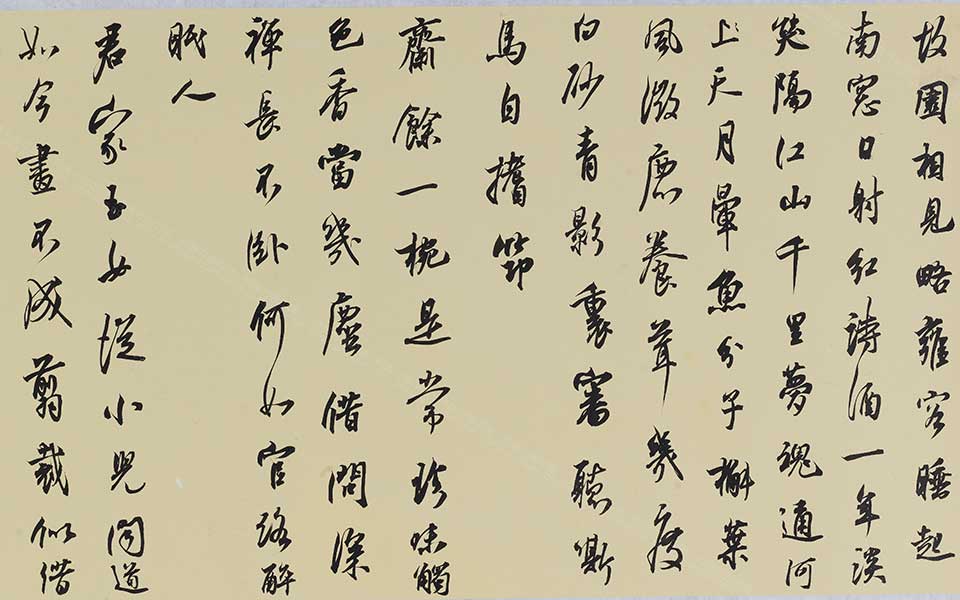 故園相見略雍容睡起
南窓日射紅詩酒一年談
笑隔江山千里夢魂通河
上天月暈魚分子槲葉
風微鹿養茸幾度
白砂青影裏審聽嘶
馬自搘笻
齋餘一椀是常珍味觸
色香當幾塵借問深
禪長不卧何如官路醉
眠人
君家玉女從小見聞道
如今畫不成剪裁似借